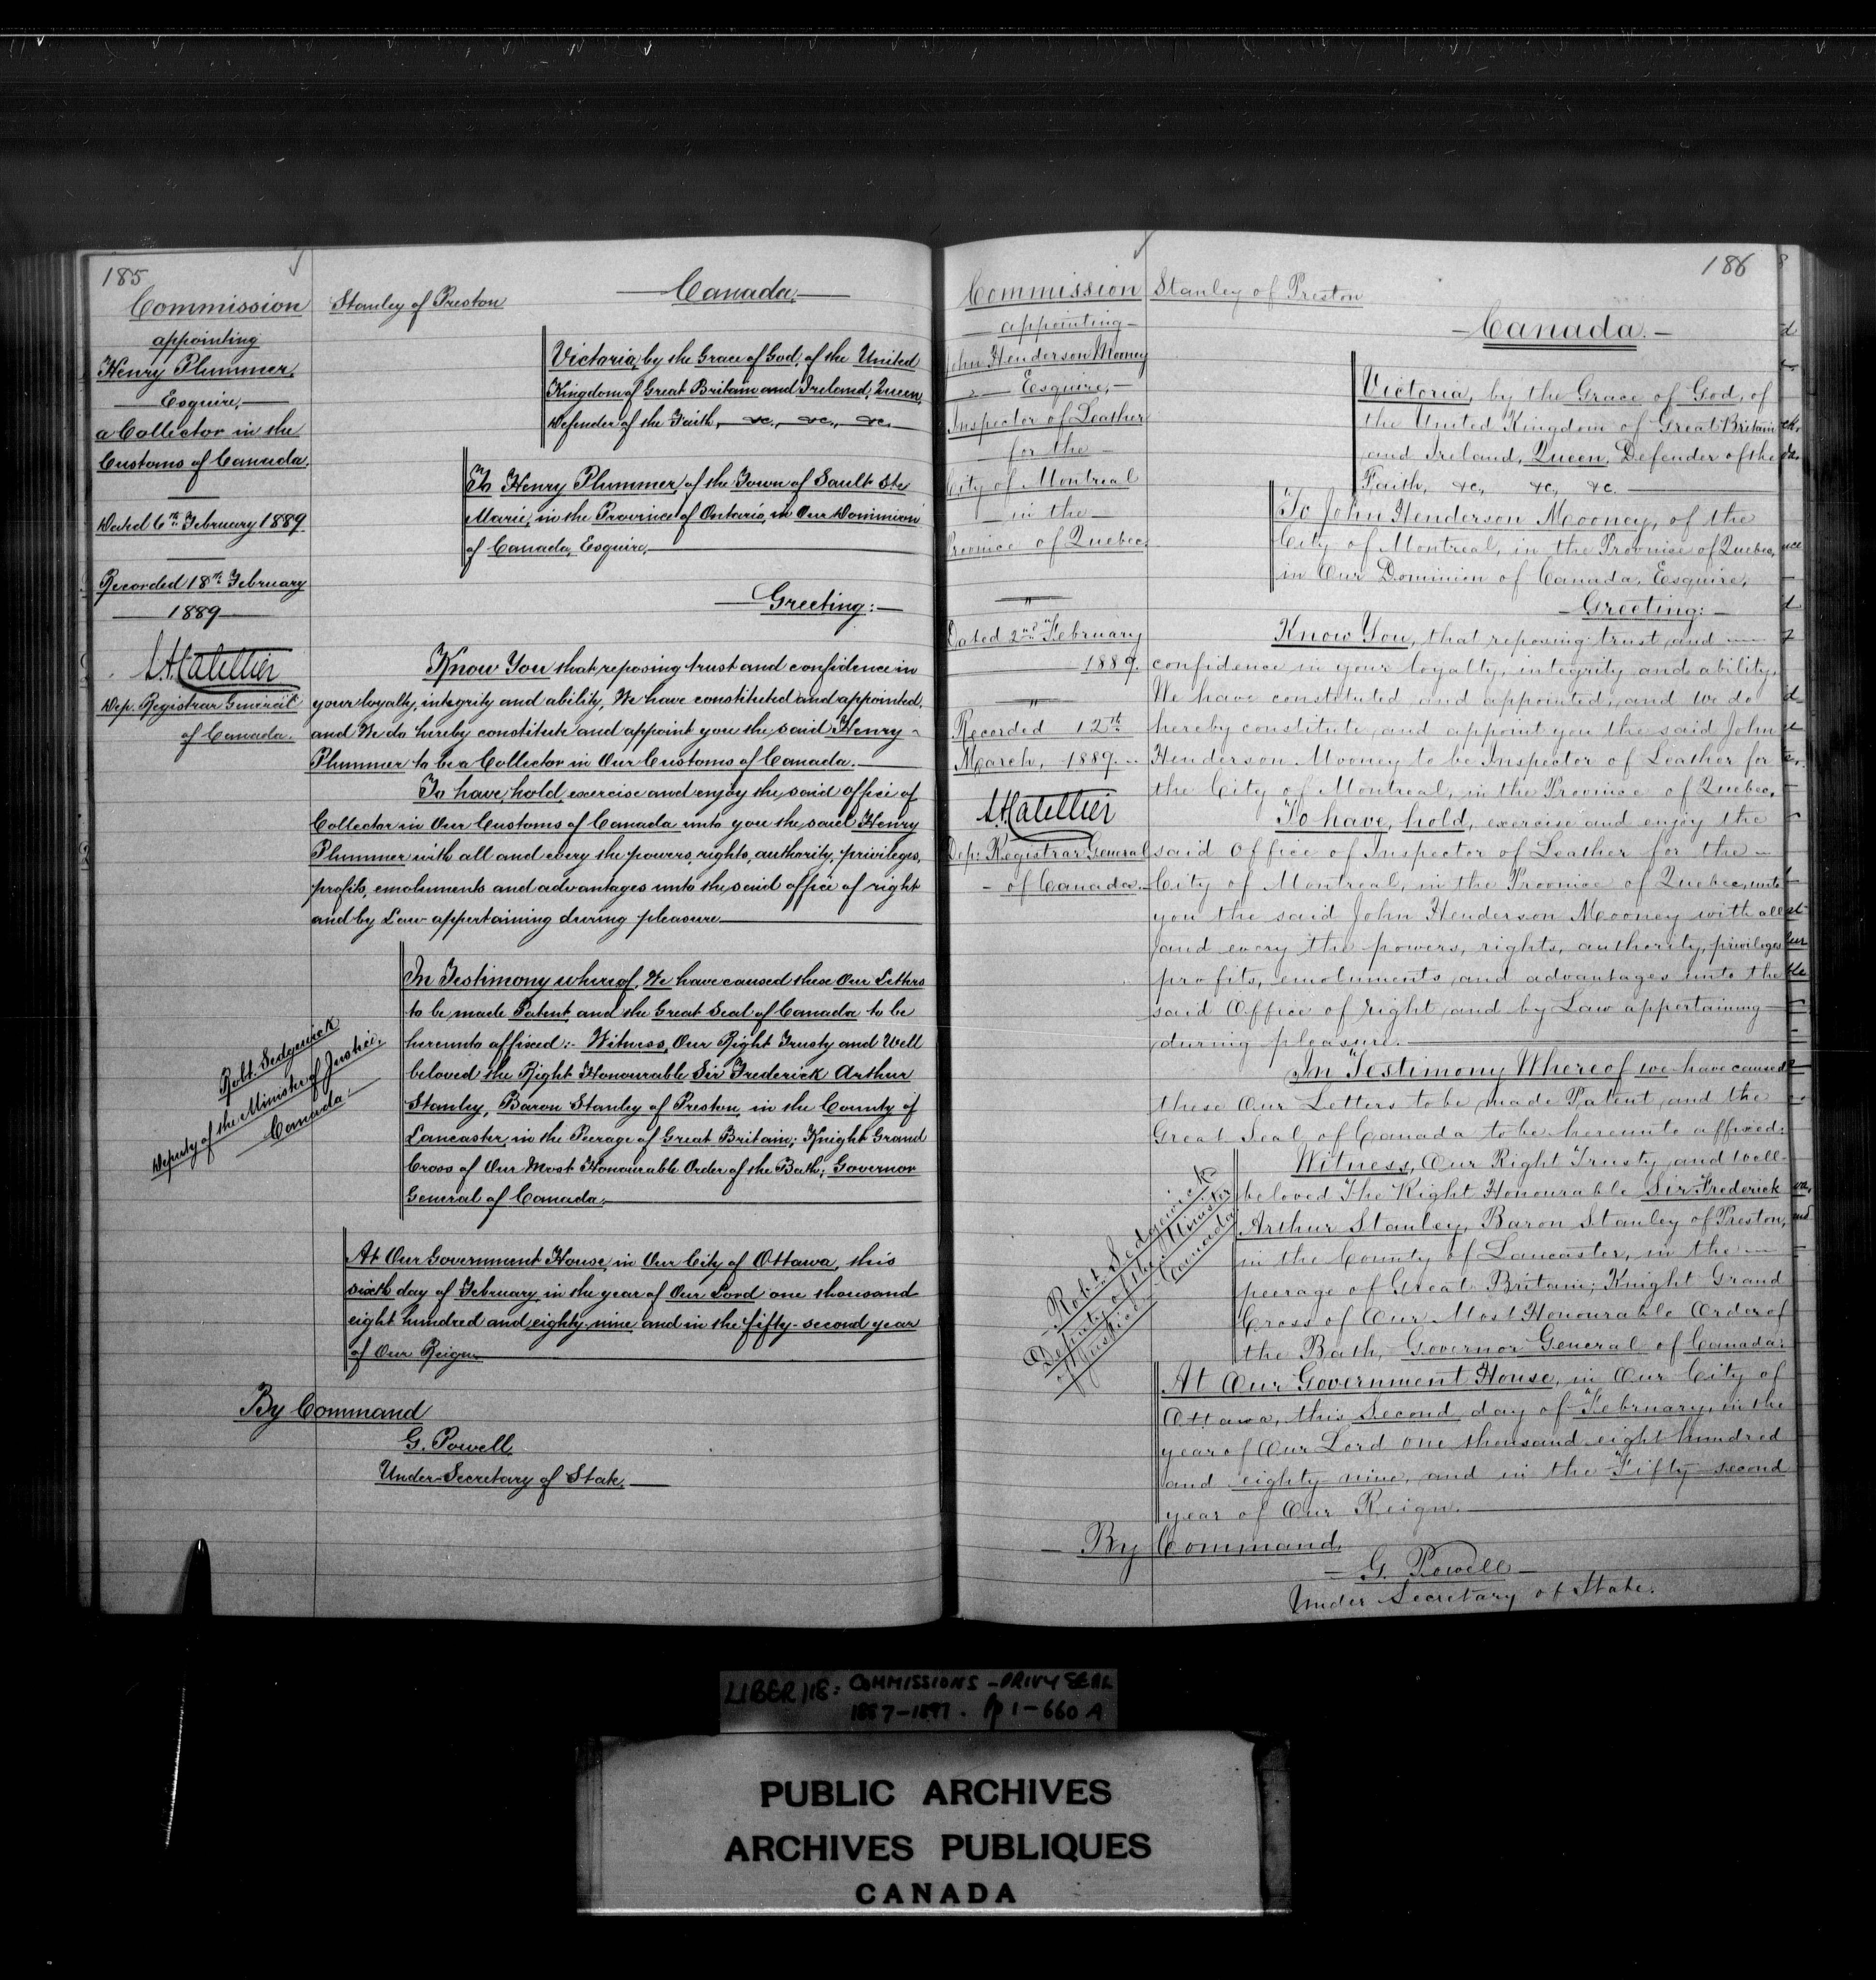 185
Commission
appointing
Henry Plummer,
Esquire,
a Collector in the
Customs of Canada.
Dated 6th February 1889
Recorded 18th February
1889
Dep. Registrar General
of Canada.
Stanley of Preston
Canada.
Victoria, by the Grace of God, of the United
Kingdom of Great Britain and Ireland, Queen,
Defender of the Faith, &c., &c., &c.
To Henry Plummer, of the Town of Sault Ste
Marie, in the Province of Ontario, in Our Dominion
of Canada, Esquire,
Greeting:
Know You that reposing trust and confidence in
your loyalty, integrity and ability, We have constituted and appointed,
and We do hereby constitute and appoint you the said Henry
Plummer to be a Collector in Our Customs of Canada.
To have, hold, exercise and enjoy the said office of
Collector in Our Customs of Canada unto you the said Henry
Plummer with all and every the powers, rights, authority, privileges,
profits, emoluments and advantages unto the said office of right
and by Law appertaining during pleasure
In Testimony whereof, We have caused these Our Letters
to be made Patent, and the Great Seal of Canada to be
hereunto affixed:- Witness, Our Right Trusty and Well
beloved the Right Honourable Sir Frederick Arthur
Stanley, Baron Stanley of Preston, in the County of
Lancaster, in the Peerage of Great Britain; Knight Grand
Cross of Our Most Honourable Order of the Bath; Governor
General of Canada.
Robt. Sedgewick
Deputy of the Minister of Justice,
Canada.
At Our Government House, in Our City of Ottawa, this
sixth day of February, in the year of Our Lord one thousand
eight hundred and eighty-nine, and in the fifty-second year
of Our Reign.
By Command
G. Powell,
Under-Secretary of State.
186
Commission
appointing
John Henderson Mooney
Esquire,
Inspector of Leather
for the
City of Montreal
in the
Province of Quebec.
Dated 2nd February
1889.
Recorded 12th
March, 1889.
Dep: Registrar General
of Canada.
Stanley of Preston
Canada.
Victoria, by the Grace of God, of
the United Kingdom of Great Britain
and Ireland, Queen, Defender of the
Faith, &c., &c., &c.
To John Henderson Mooney, of the
City of Montreal, in the Province of Quebec,
in Our Dominion of Canada, Esquire,
Greeting:
Know You, that reposing trust and
confidence in your loyalty, integrity and ability,
We have constituted and appointed, and we do
hereby constitute and appoint you the said John
Henderson Mooney to be Inspector of Leather for
the City of Montreal, in the Province of Quebec.
To have, hold, exercise and enjoy the
said Office of Inspector of Leather for the
City of Montreal, in the Province of Quebec, unto
you the said John Henderson Mooney with all
and every the powers, rights, authority, privileges
profits, emoluments and advantages unto the
said Office of right and by Law appertaining
during pleasure.
In Testimony Whereof we have caused
these Our Letters to be made Patent and the
Great Seal of Canada to be hereunto affixed:
Witness, Our Right Trusty and Well-
beloved The Right Honourable Sir Frederick
Arthur Stanley, Baron Stanley of Preston,
in the County of Lancaster, in the
peerage of Great Britain; Knight Grand
Cross of Our Most Honourable Order of
the Bath, Governor General of Canada:
Robt. Sedgewick
Deputy of the Minister
of Justice, Canada
At Our Government House, in Our City of
Ottawa, this Second day of February, in the
year of Our Lord one thousand eight hundred
and eighty-nine, and in the Fifty second
year of Our Reign.
By Command,
G. Powell
Under Secretary of State.
LIBER 118: COMMISSIONS - PRIVY SEAL
1887-1897. Pp 1-660 A
PUBLIC ARCHIVES
ARCHIVES PUBLIQUES
CANADA